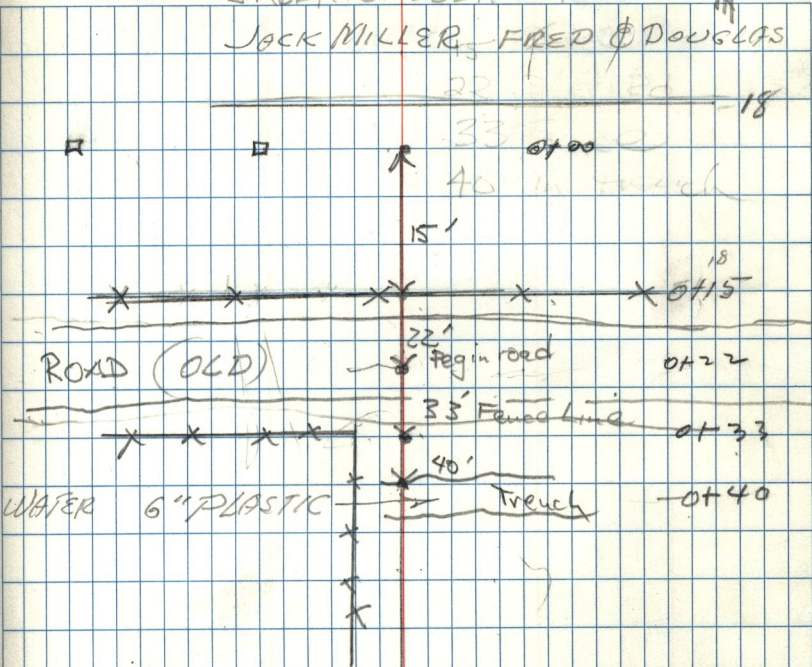 JACK MILLER FRED & DOUGLAS
18
0+00
15'
18
0+15
22'
ROAD (OLD) Peg in road 0+22
33' Fence Line 0+33
40'
WATER 6" PLASTIC Trench 0+40